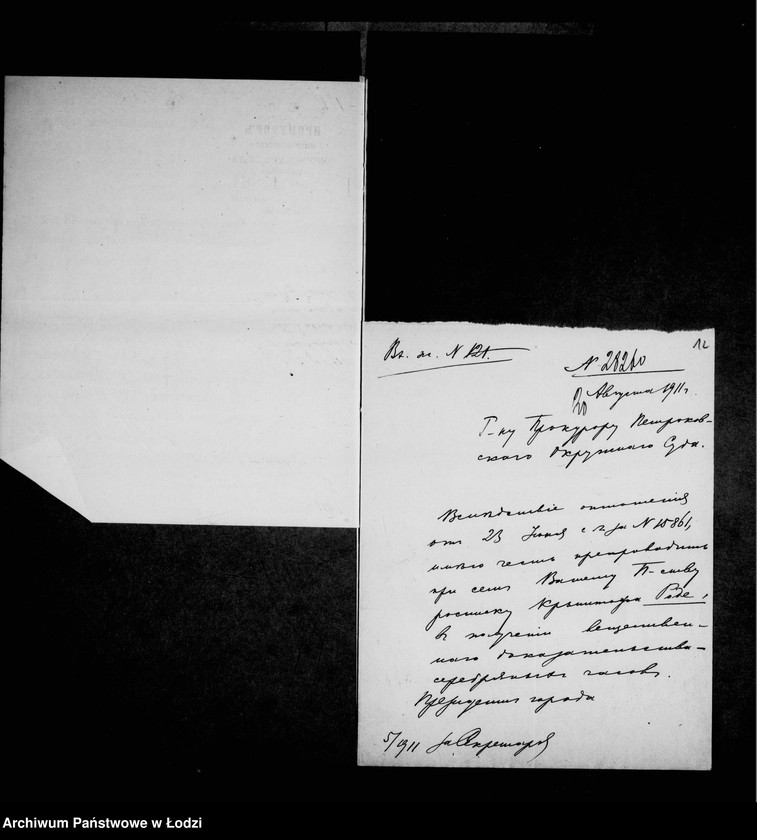 12
Вх. эк. N 121.
N 28260
20 Августа 1911 г.
Г-ну Прокурору Петроков-
скаго Окружнаго Суда.
Вследствіе отношенія
отъ 23 Іюня с. г. за N 15861,
имею честь препроводить
при семъ Вашему П-ству
росписку Криштофа Реде,
въ полученіи веществен-
наго доказательства-
серебряныхъ часовъ.
Президентъ города
5/1911 за Секретаря
Archiwum Państwowe w Łodzi